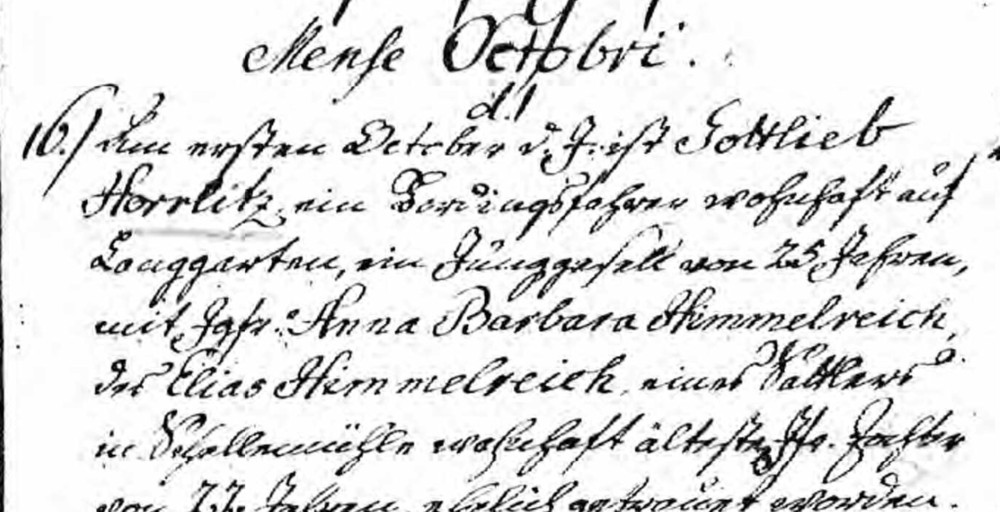 Mense Octobri.
d. 1
16.) Am ersten October d. J. ist Gottlieb
Horrlitz, ein Bordingsfahrer wohnhaft auf
Langgarten, ein Junggesell von 25 Jahren,
mit Jgfr. Anna Barbara Himmelreich,
des Elias Himmelreich, eines Sattlers
in Schellmühle wohnhaft älteste Tochter
von Jahren ehelich getrauet worden.